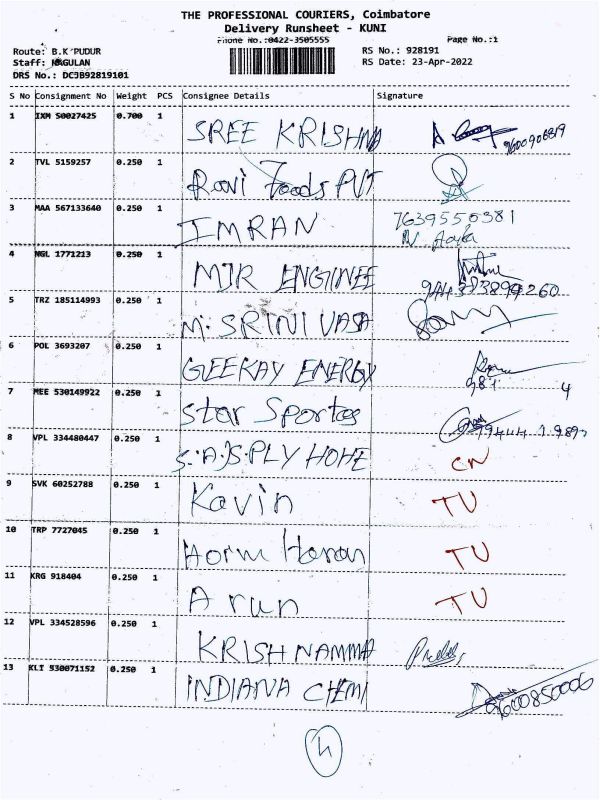 THE PROFESSIONAL COURIERS, Coimbatore
Delivery Runsheet - KUNI
Phone No.:0422-3505555 Page No.:1
Route: B.K PUDUR RS No.: 928191
Staff: MAGULAN RS Date: 23-Apr-2022
DRS No.: DC3B92819101
S No Consignment No Weight PCS Consignee Details Signature
1 IXM 50027425 0.700 1 SREE KRISHNA
2 TVL 5159257 0.250 1 Ravi Foods PVT
3 MAA 567133640 0.250 1 IMRAN 7639550381
4 NGL 1771213 0.250 1 MJR ENGINEE
5 TRZ 185114993 0.250 1 M. SRINIVASA
6 POL 3693207 0.250 1 GEEKAY ENERGY
7 MEE 530149922 0.250 1 Star Sportes
8 VPL 334480447 0.250 1 S.A.S PLY HOME CN
9 SVK 60252788 0.250 1 Kavin TU
10 TRP 7727045 0.250 1 TU
11 KRG 918404 0.250 1 Arun TU
12 VPL 334528596 0.250 1 KRISHNAMMA
13 KLT 530071152 0.250 1 INDIANA CHEMI 9600850006